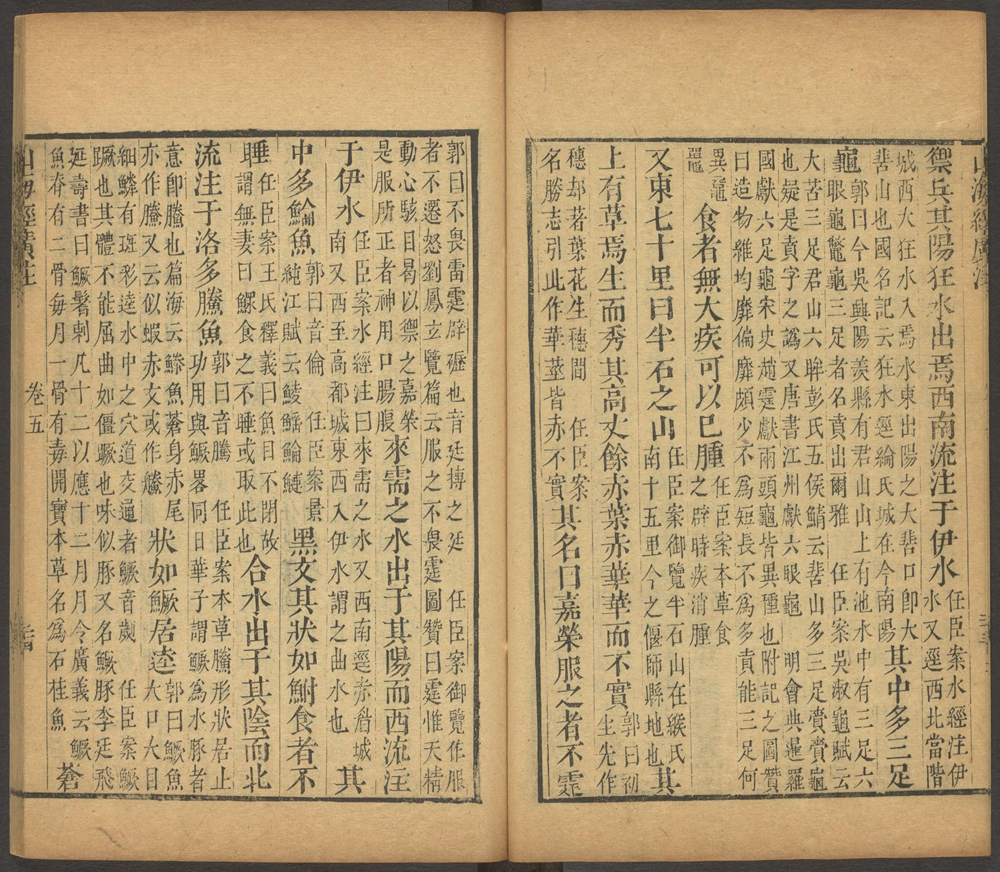 山海經廣注
禦兵其陽狂水出焉西南流注于伊水
任臣案水經注伊
水又逕西北當階
城西大狂水入焉水東出陽之大𦱷口卽大
𦱷山也國名記云狂水逕綸氏城在今南陽
其中多三足
龜
郭曰今吳興陽羨縣有君山山上有池水中有三足六
眼龜鼈龜三足者名賁出爾雅 任臣案吳淑龜賦云
大苦三足君山六眸彭氏五侯鯖云𦱷山多三足賁賁龜
也疑是賁字之譌又唐書江州獻六眼龜 明會典暹羅
國獻六足龜宋史趙霆獻兩頭龜皆異種也附記之圖贊
曰造物維均靡偏靡頗少不爲短長不爲多賁能三足何
異黿
鼉
食者無大疾可以已腫
任臣案本草食
之辟時疾消腫
又東七十里曰半石之山
任臣案御覽半石山在緱氏
南十五里今之偃師縣地也
其
上有草焉生而秀其高丈餘赤葉赤華華而不實
郭曰初
生先作
穗却著葉花生穗間 任臣案
名勝志引此作華莖皆赤不實
其名曰嘉榮服之者不霆
郭曰不畏雷霆辟礰也音廷摶之廷 任臣案御覽作服
者不遷怒劉鳳玄覽篇云服之不畏霆圖贊曰霆惟天精
動心駭目曷以禦之嘉榮
是服所正者神用口腸腹
來需之水出于其陽而西流注
于伊水
任臣案水經注曰來需之水又西南逕赤眉城
南又西至高都城東西入伊水謂之曲水也
其
中多鯩魚
郭曰音倫 任臣案景
純江賦云鯪鰩鯩鰱
黑文其狀如鮒食者不
睡
任臣案王氏釋義曰魚目不閉故
謂無妻曰鰥食之不睡或取此也
合水出于其陰而北
流注于洛多䲢魚
郭曰音騰 任臣案本草䲢形狀居止
功用與鱖畧同日華子謂鱖爲水豚者
意卽䲢也篇海云鰧魚蒼身赤尾
亦作䲢又云似蝦赤文或作鰧
狀如鱖居逵
郭曰鱖魚
大口大目
細鱗有斑彩逵水中之穴道交通者鱖音歲 任臣案鱖
蹶也其體不能屈曲如僵蹶也味似豚又名鱖豚李廷飛
延壽書曰鱖鬐刺凡十二以應十二月月令廣義云鱖
魚脊有二骨每月一骨有毒開寶本草名爲石桂魚
蒼
山海經廣注 卷五 三十四